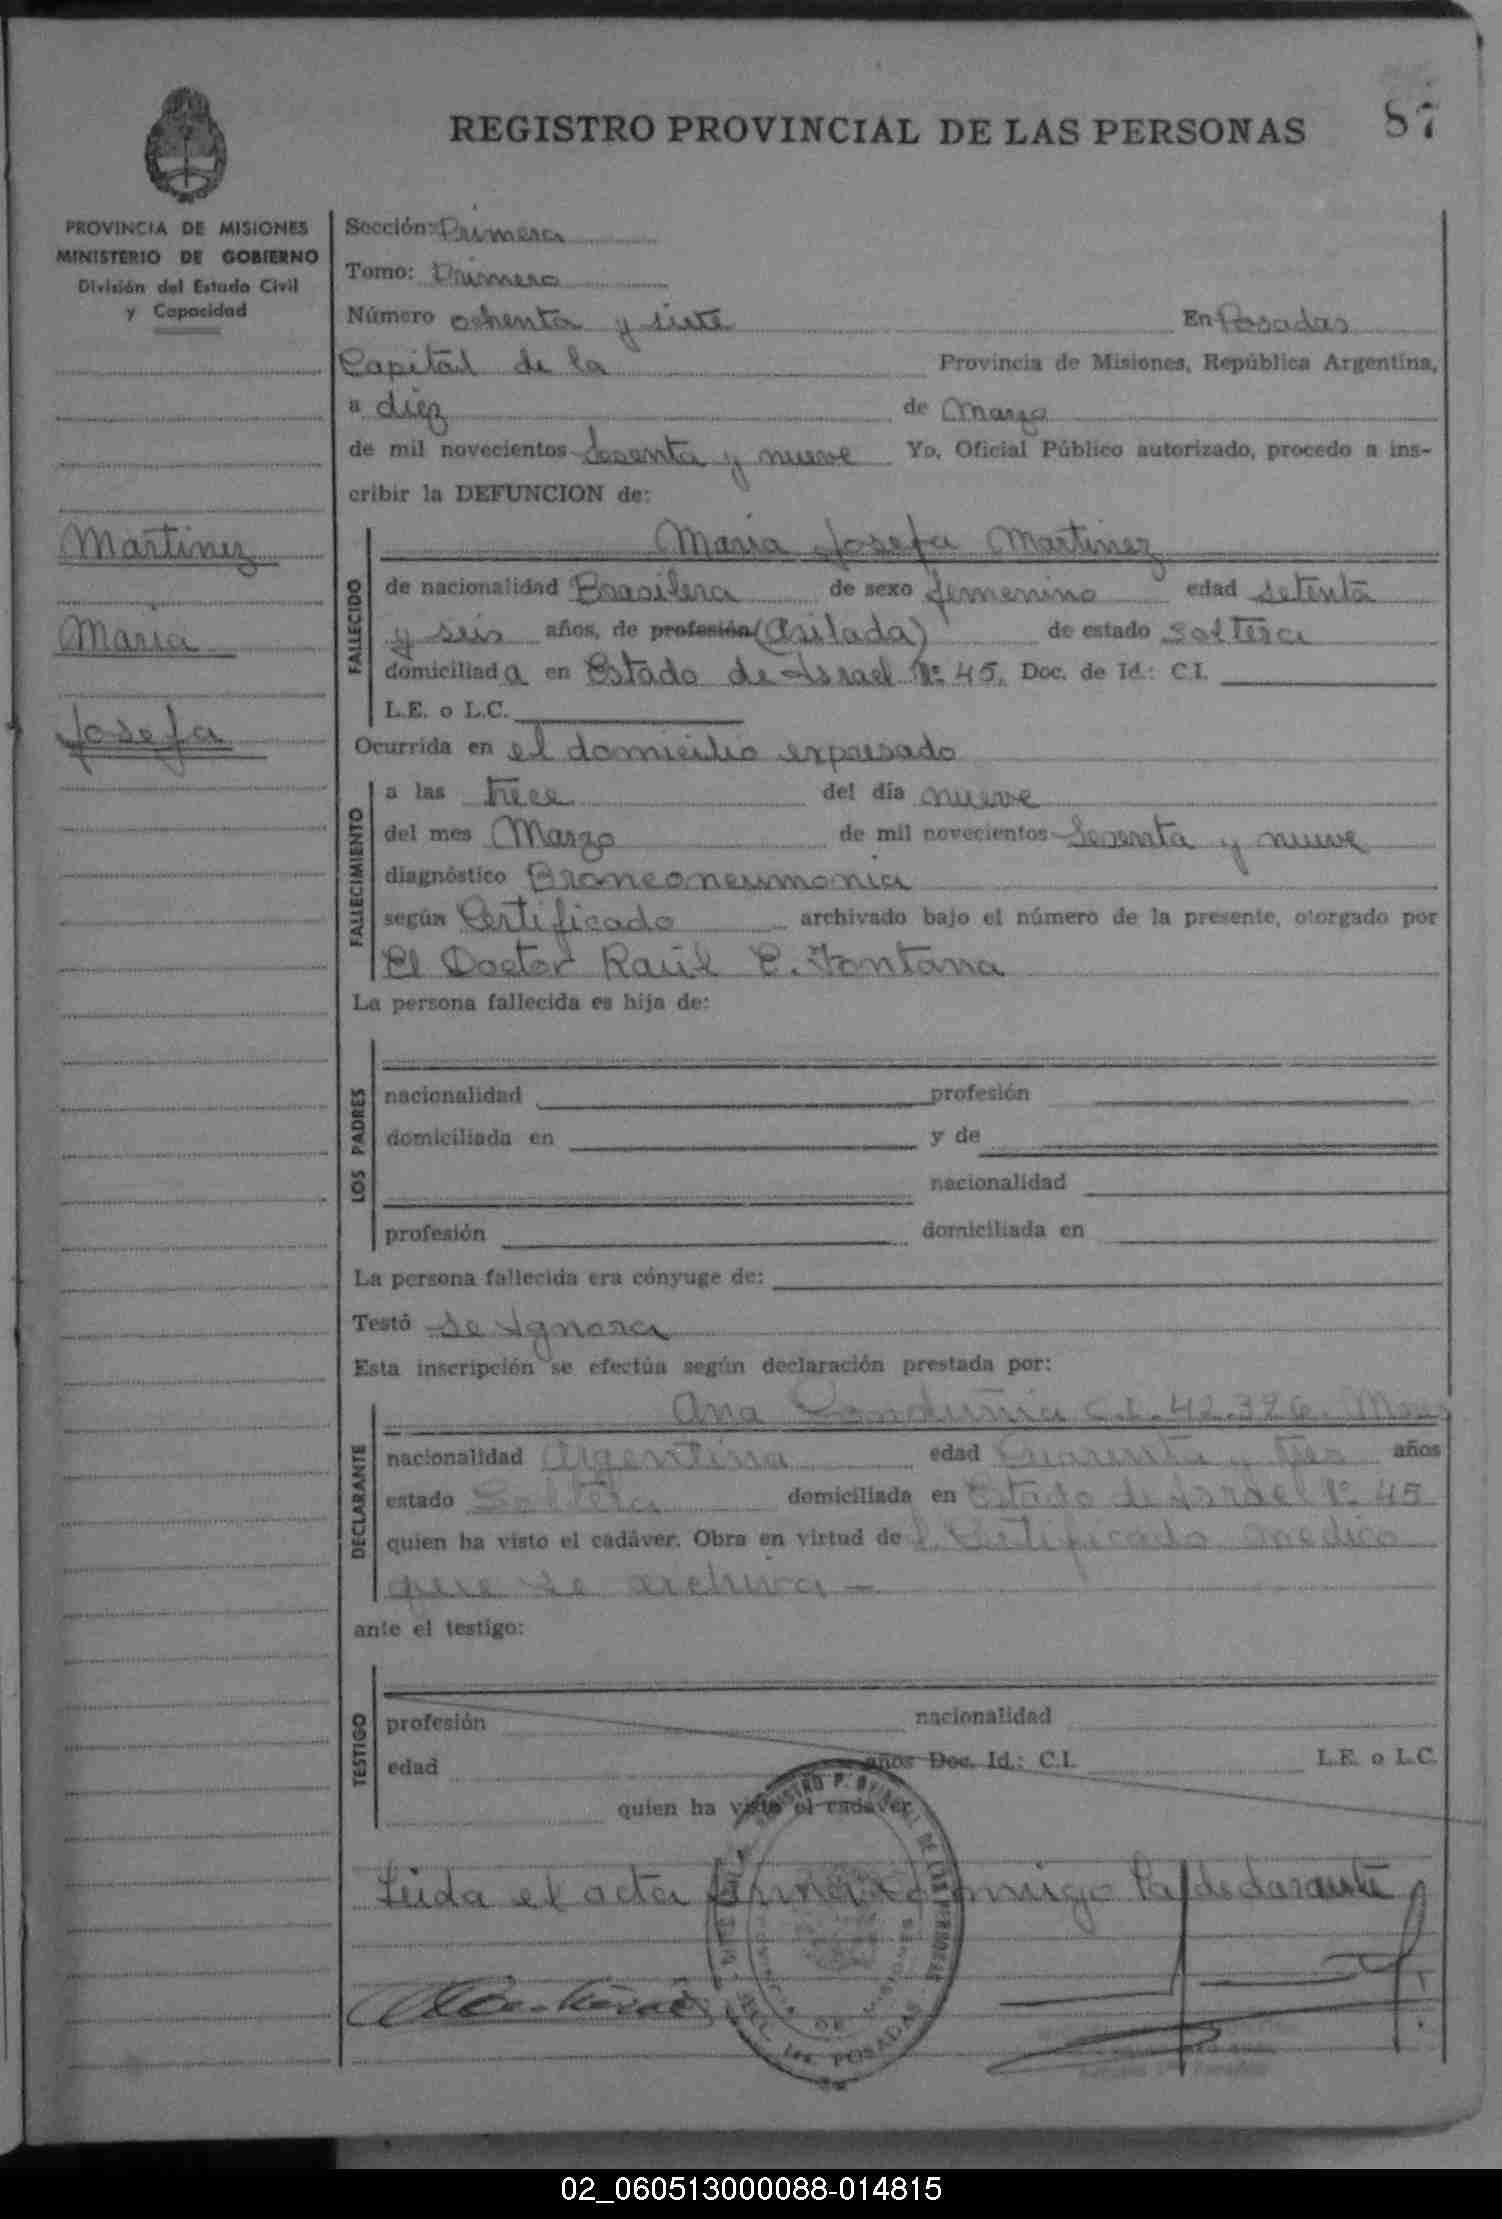 REGISTRO PROVINCIAL DE LAS PERSONAS
87
PROVINCIA DE MISIONES
MINISTERIO DE GOBIERNO
División del Estado Civil
y Capacidad
Martinez
Maria
Josefa
Sección: Primera
Tomo: Primero
Número ochenta y siete En Posadas
Capital de la Provincia de Misiones, República Argentina,
a diez de Marzo
de mil novecientos sesenta y nueve Yo, Oficial Público autorizado, procedo a ins-
cribir la DEFUNCION de:
FALLECIDO
Maria Josefa Martinez
de nacionalidad Brasilera de sexo femenino edad setenta
y seis años, de profesión (Asilada) de estado soltera
domiciliada en Estado de Israel Nº 45. Doc. de Id.: C.I.
L.E. o L.C.
Ocurrida en el domicilio expresado
FALLECIMIENTO
a las trece del día nueve
del mes Marzo de mil novecientos sesenta y nueve
diagnóstico Bronconeumonia
según Certificado archivado bajo el número de la presente, otorgado por
El Doctor Raúl C. Fontana
La persona fallecida es hija de:
LOS PADRES
nacionalidad profesión
domiciliada en y de
nacionalidad
profesión domiciliada en
La persona fallecida era cónyuge de:
Testó se Ignora
Esta inscripción se efectúa según declaración prestada por:
DECLARANTE
Ana C.I. 42.376.
nacionalidad Argentina edad Cuarenta y tres años
estado Soltera domiciliada en Estado de Israel Nº 45
quien ha visto el cadáver. Obra en virtud del Certificado medico
que se archiva -
ante el testigo:
TESTIGO
profesión nacionalidad
edad años Doc. Id.: C.I. L.E. o L.C.
quien ha visto el cadáver
Leida el acta firma conmigo la declarante
REGISTRO PROVINCIAL DE LAS PERSONAS
PROVINCIA DE MISIONES
SECC. 1ra. POSADAS
02_060513000088-014815